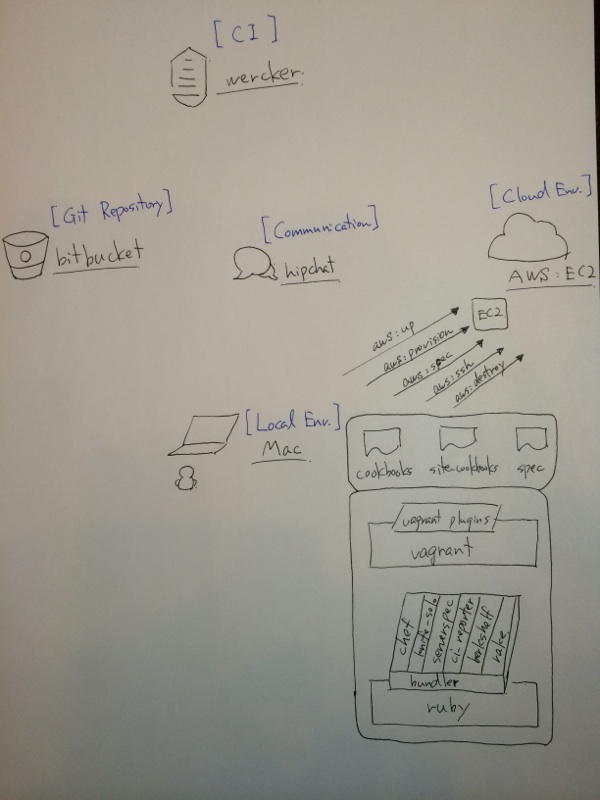 [CI]
wercker
[Git Repository]
bitbucket
[Communication]
hipchat
[Cloud Env.]
AWS:EC2
EC2
aws:up
aws:provision
aws:spec
aws:ssh
aws:destroy
[Local Env.]
Mac
cookbooks
site-cookbooks
spec
vagrant plugins
vagrant
chef
knife-solo
serverspec
ci-reporter
berkshelf
rake
bundler
ruby